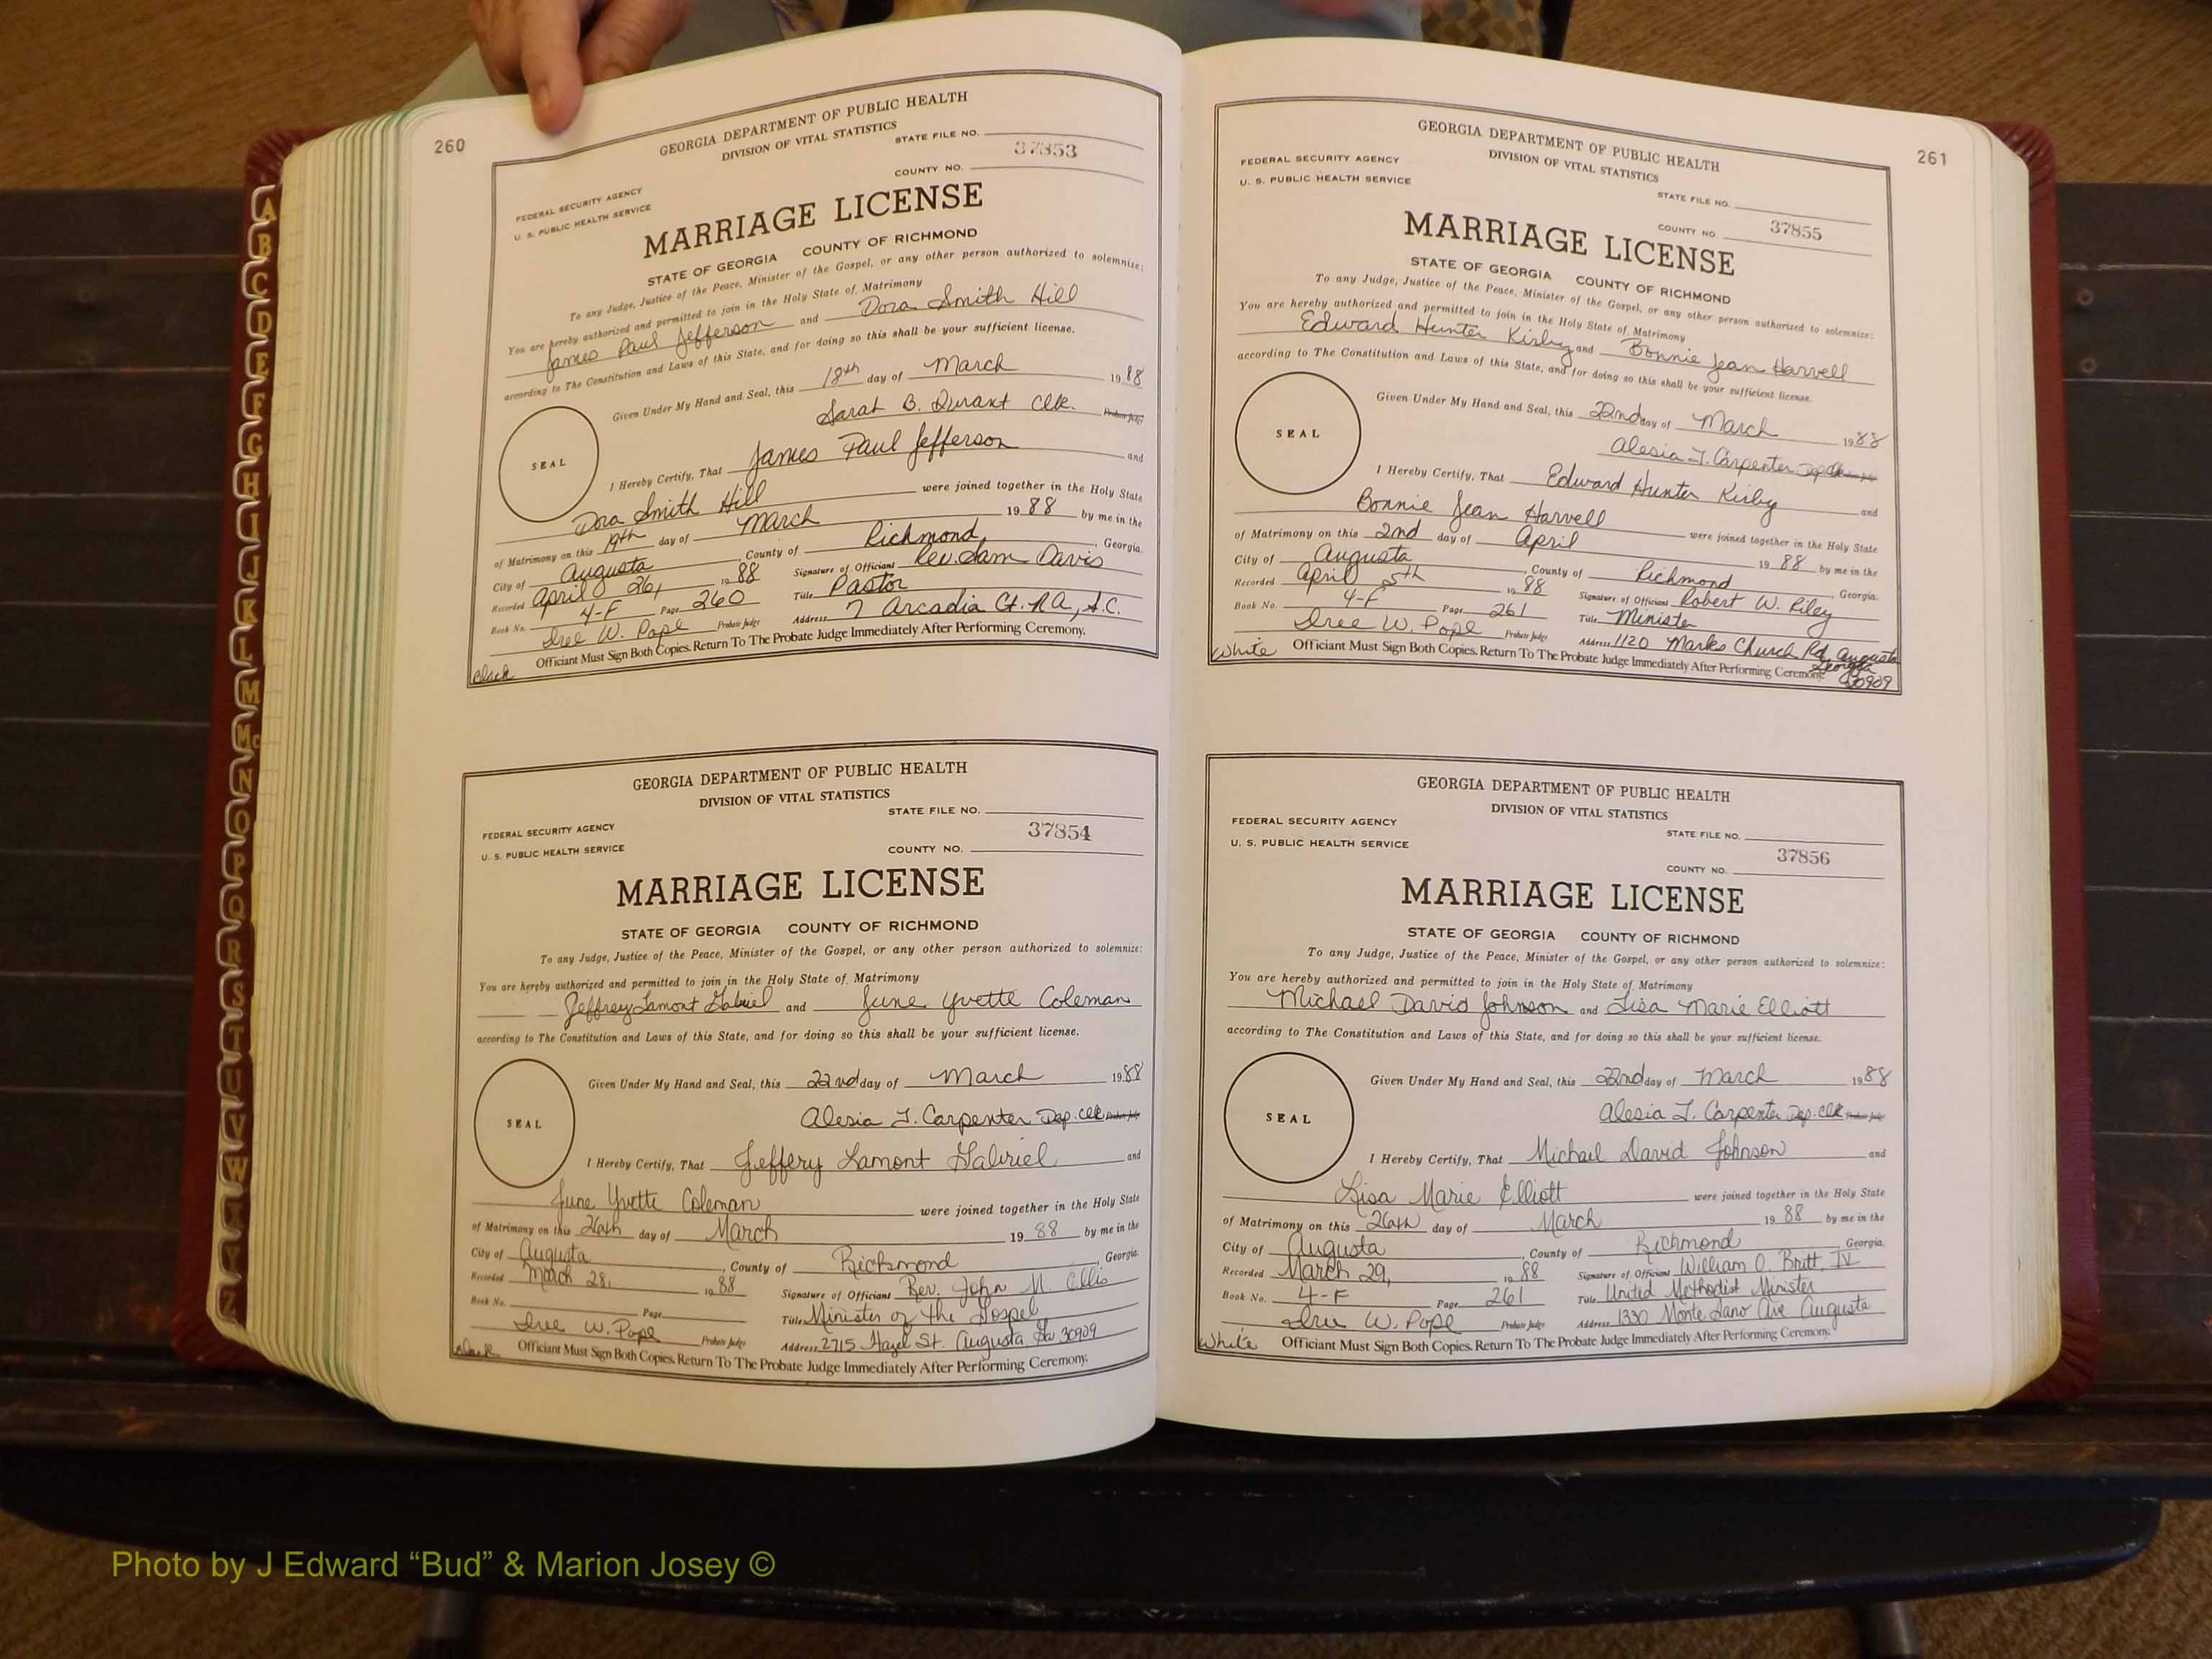 260
GEORGIA DEPARTMENT OF PUBLIC HEALTH
DIVISION OF VITAL STATISTICS
STATE FILE NO.
37853
COUNTY NO.
FEDERAL SECURITY AGENCY
U. S. PUBLIC HEALTH SERVICE
MARRIAGE LICENSE
STATE OF GEORGIA COUNTY OF RICHMOND
To any Judge, Justice of the Peace, Minister of the Gospel, or any other person authorized to solemnize:
You are hereby authorized and permitted to join in the Holy State of Matrimony
James Paul Jefferson and Dora Smith Hill
according to The Constitution and Laws of this State, and for doing so this shall be your sufficient license.
Given Under My Hand and Seal, this 18th day of March 1988
Sarah B. Durant Clk. Probate Judge
SEAL
I Hereby Certify, That James Paul Jefferson and
Dora Smith Hill were joined together in the Holy State
of Matrimony on this 19th day of March 19 88 by me in the
City of Augusta, County of Richmond, Georgia.
Recorded April 26, 19 88 Signature of Officiant Rev. Sam Davis
Book No. 4-F Page 260 Title Pastor
Iree W. Pope Probate Judge Address 7 Arcadia Ct. N.A., S.C.
Officiant Must Sign Both Copies. Return To The Probate Judge Immediately After Performing Ceremony.
Black
GEORGIA DEPARTMENT OF PUBLIC HEALTH
DIVISION OF VITAL STATISTICS
STATE FILE NO.
37854
COUNTY NO.
FEDERAL SECURITY AGENCY
U. S. PUBLIC HEALTH SERVICE
MARRIAGE LICENSE
STATE OF GEORGIA COUNTY OF RICHMOND
To any Judge, Justice of the Peace, Minister of the Gospel, or any other person authorized to solemnize:
You are hereby authorized and permitted to join in the Holy State of Matrimony
Jeffrey Lamont Gabriel and June Yvette Coleman
according to The Constitution and Laws of this State, and for doing so this shall be your sufficient license.
Given Under My Hand and Seal, this 22nd day of March 1988
Alesia J. Carpenter Dep. Clk Probate Judge
SEAL
I Hereby Certify, That Jeffery Lamont Gabriel and
June Yvette Coleman were joined together in the Holy State
of Matrimony on this 26th day of March 19 88 by me in the
City of Augusta, County of Richmond, Georgia.
Recorded March 28, 19 88 Signature of Officiant Rev. John M. Ellis
Book No. Page Title Minister of the Gospel
Iree W. Pope Probate Judge Address 2715 Hazel St. Augusta, Ga 30909
Black Officiant Must Sign Both Copies. Return To The Probate Judge Immediately After Performing Ceremony.
261
GEORGIA DEPARTMENT OF PUBLIC HEALTH
DIVISION OF VITAL STATISTICS
FEDERAL SECURITY AGENCY
U. S. PUBLIC HEALTH SERVICE
STATE FILE NO.
37855
COUNTY NO.
MARRIAGE LICENSE
STATE OF GEORGIA COUNTY OF RICHMOND
To any Judge, Justice of the Peace, Minister of the Gospel, or any other person authorized to solemnize:
You are hereby authorized and permitted to join in the Holy State of Matrimony
Edward Hunter Kirby and Bonnie Jean Harvell
according to The Constitution and Laws of this State, and for doing so this shall be your sufficient license.
Given Under My Hand and Seal, this 22nd day of March 1988
Alesia J. Carpenter Dep
SEAL
I Hereby Certify, That Edward Hunter Kirby and
Bonnie Jean Harvell were joined together in the Holy State
of Matrimony on this 2nd day of April 19 88 by me in the
City of Augusta, County of Richmond, Georgia.
Recorded April 5th 19 88 Signature of Officiant Robert W. Riley
Book No. 4-F Page 261 Title Minister
Iree W. Pope Probate Judge Address 1120 Marks Church Rd, Augusta
Georgia
30909
White Officiant Must Sign Both Copies. Return To The Probate Judge Immediately After Performing Ceremony.
GEORGIA DEPARTMENT OF PUBLIC HEALTH
DIVISION OF VITAL STATISTICS
FEDERAL SECURITY AGENCY
U. S. PUBLIC HEALTH SERVICE
STATE FILE NO.
37856
COUNTY NO.
MARRIAGE LICENSE
STATE OF GEORGIA COUNTY OF RICHMOND
To any Judge, Justice of the Peace, Minister of the Gospel, or any other person authorized to solemnize:
You are hereby authorized and permitted to join in the Holy State of Matrimony
Michael David Johnson and Lisa Marie Elliott
according to The Constitution and Laws of this State, and for doing so this shall be your sufficient license.
Given Under My Hand and Seal, this 22nd day of March 1988
Alesia J. Carpenter Dep. Clk Probate Judge
SEAL
I Hereby Certify, That Michael David Johnson and
Lisa Marie Elliott were joined together in the Holy State
of Matrimony on this 26th day of March 19 88 by me in the
City of Augusta, County of Richmond, Georgia.
Recorded March 29, 19 88 Signature of Officiant William O. Britt, IV
Book No. 4-F Page 261 Title United Methodist Minister
Iree W. Pope Probate Judge Address 1330 Monte Sano Ave Augusta
White Officiant Must Sign Both Copies. Return To The Probate Judge Immediately After Performing Ceremony.
A
B
C
D
E
F
G
H
I
J
K
L
M
Mc
N
O
P
Q
R
S
T
U
V
W
Z
Photo by J Edward “Bud” & Marion Josey ©